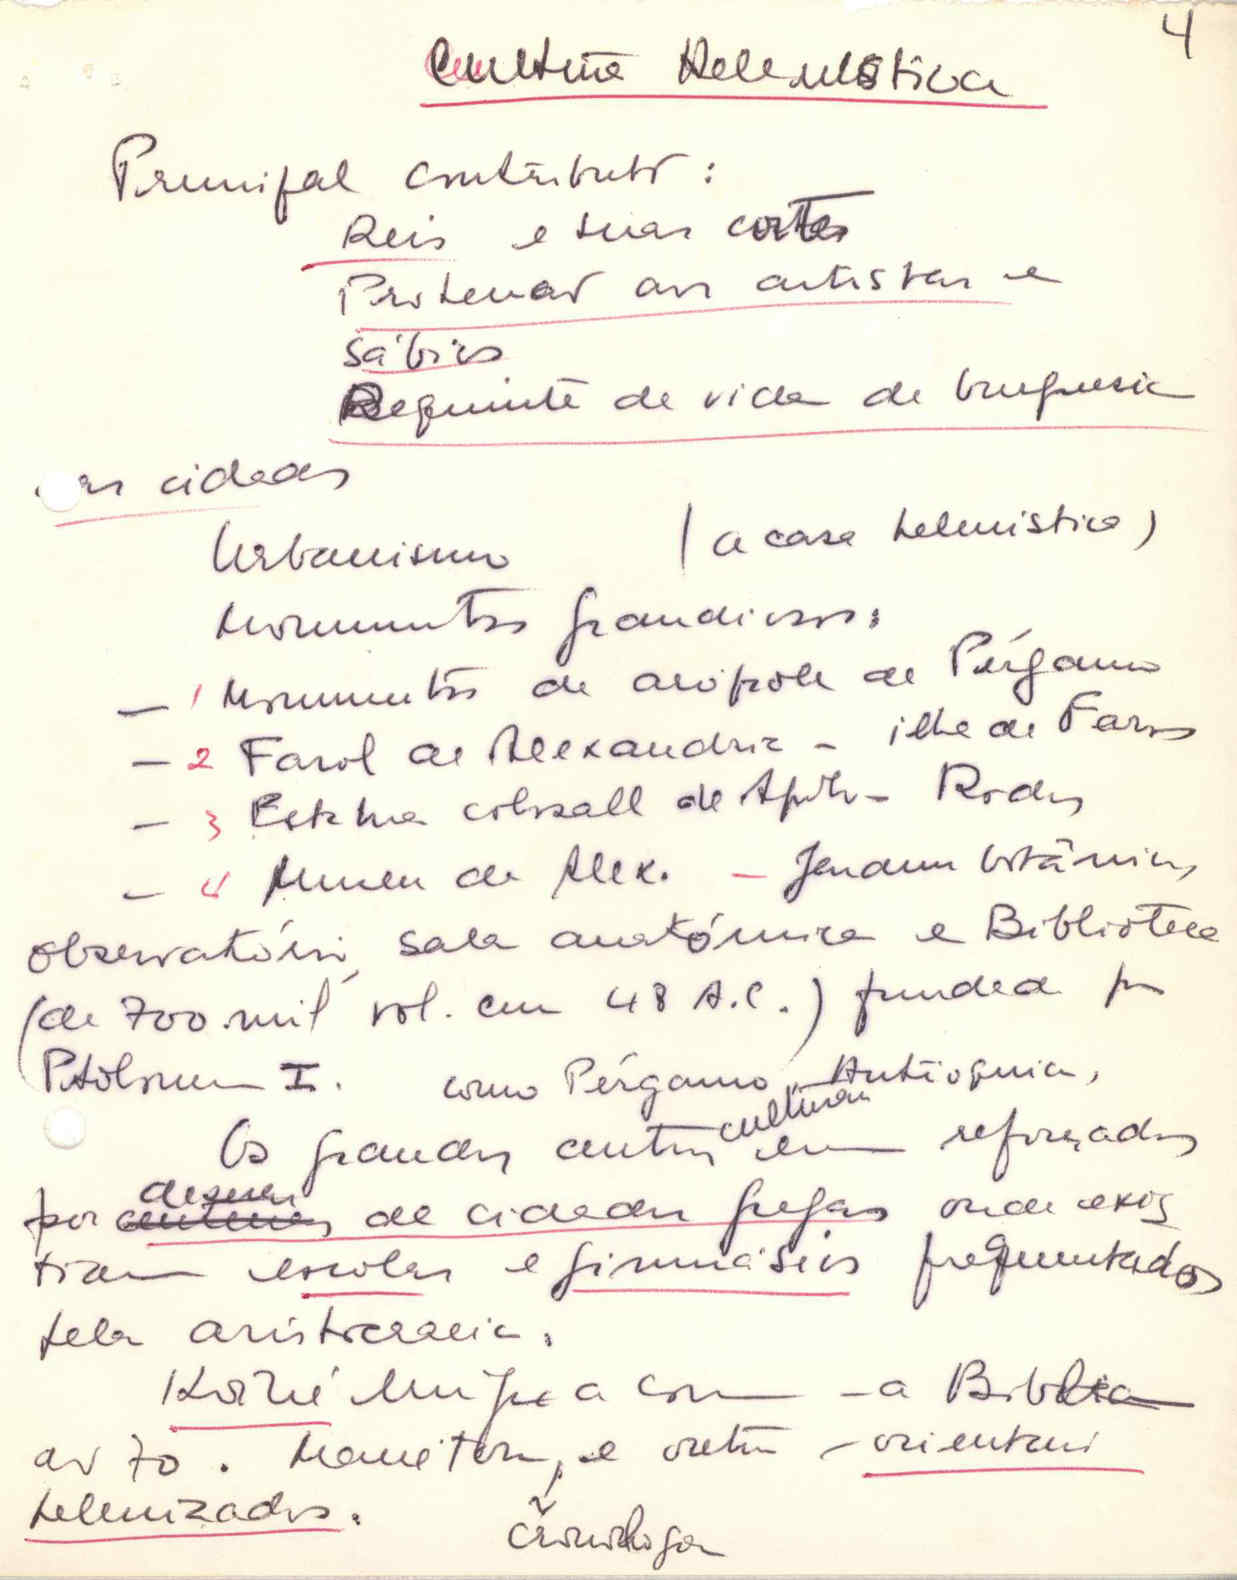 4
Cultura Helenística
Principal contributo:
Reis e suas cortes
Protecção aos artistas e
sábios
Requinte de vida da burguesia
nas cidades
Urbanismo (a casa helenistica)
Monumentos grandiosos:
- 1 Monumentos da acrópole de Pérgamo
- 2 Farol de Alexandria - ilha de Faros
- 3 Estátua colossall de Apolo - Rodes
- 4 Museu de Alex. - Jardim botânico,
observatório, sala anatómica e Biblioteca
(de 700.mil vol. em 48 A.C.) fundada por
Ptolomeu I. como Pérgamo, Antioquia,
Os grandes centros culturais eram reforçados
por dezenas de cidades gregas onde exis
tiam escolas e ginásios frequentados
pela aristocracia.
Koiné língua comum - a Biblia
dos 70. Maneton, e outros orientais
helenizados.
cronólogo